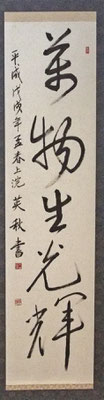 萬物生光輝
平成戊戌年孟春上浣 英秋書